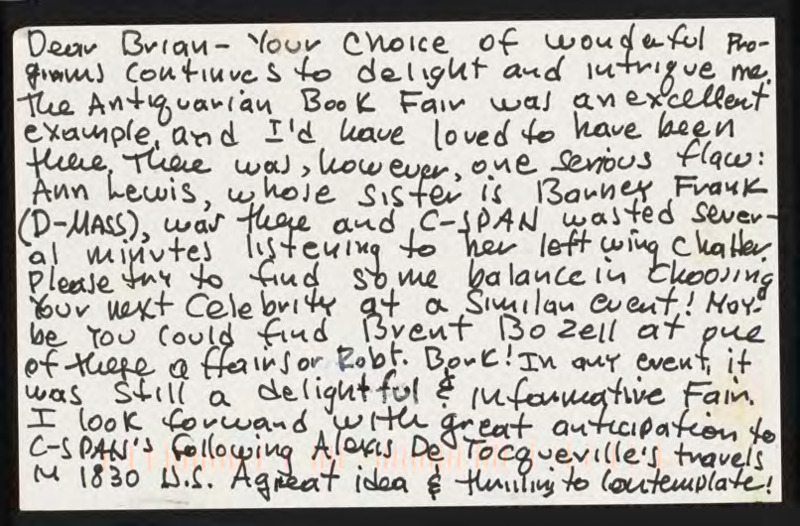 Dear Brian- Your choice of wonderful Pro-
grams continues to delight and intrigue me.
The Antiquarian Book Fair was an excellent
example, and I'd have loved to have been
there. There was, however, one serious flaw:
Ann Lewis, whose sister is Barney Frank
(D-MASS), was there and C-SPAN wasted sever-
al minutes listening to her left wing chatter.
Please try to find some balance in choosing
Your next Celebrity at a Similar event! May-
be You could find Brent Bozell at one
of these affairs or Robt. Bork! In any event, it
was still a delightful & informative Fair.
I look forward with great anticipation to
C-SPAN's following Alexis De Tocqueville's travels
in 1830 U.S. A great idea & thrilling to contemplate!